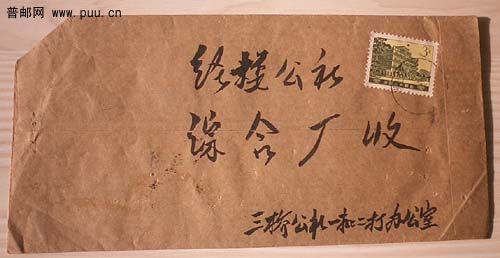 普邮网
www.puu.cn
3
公社
综合厂收
三桥公社一批二打办公室